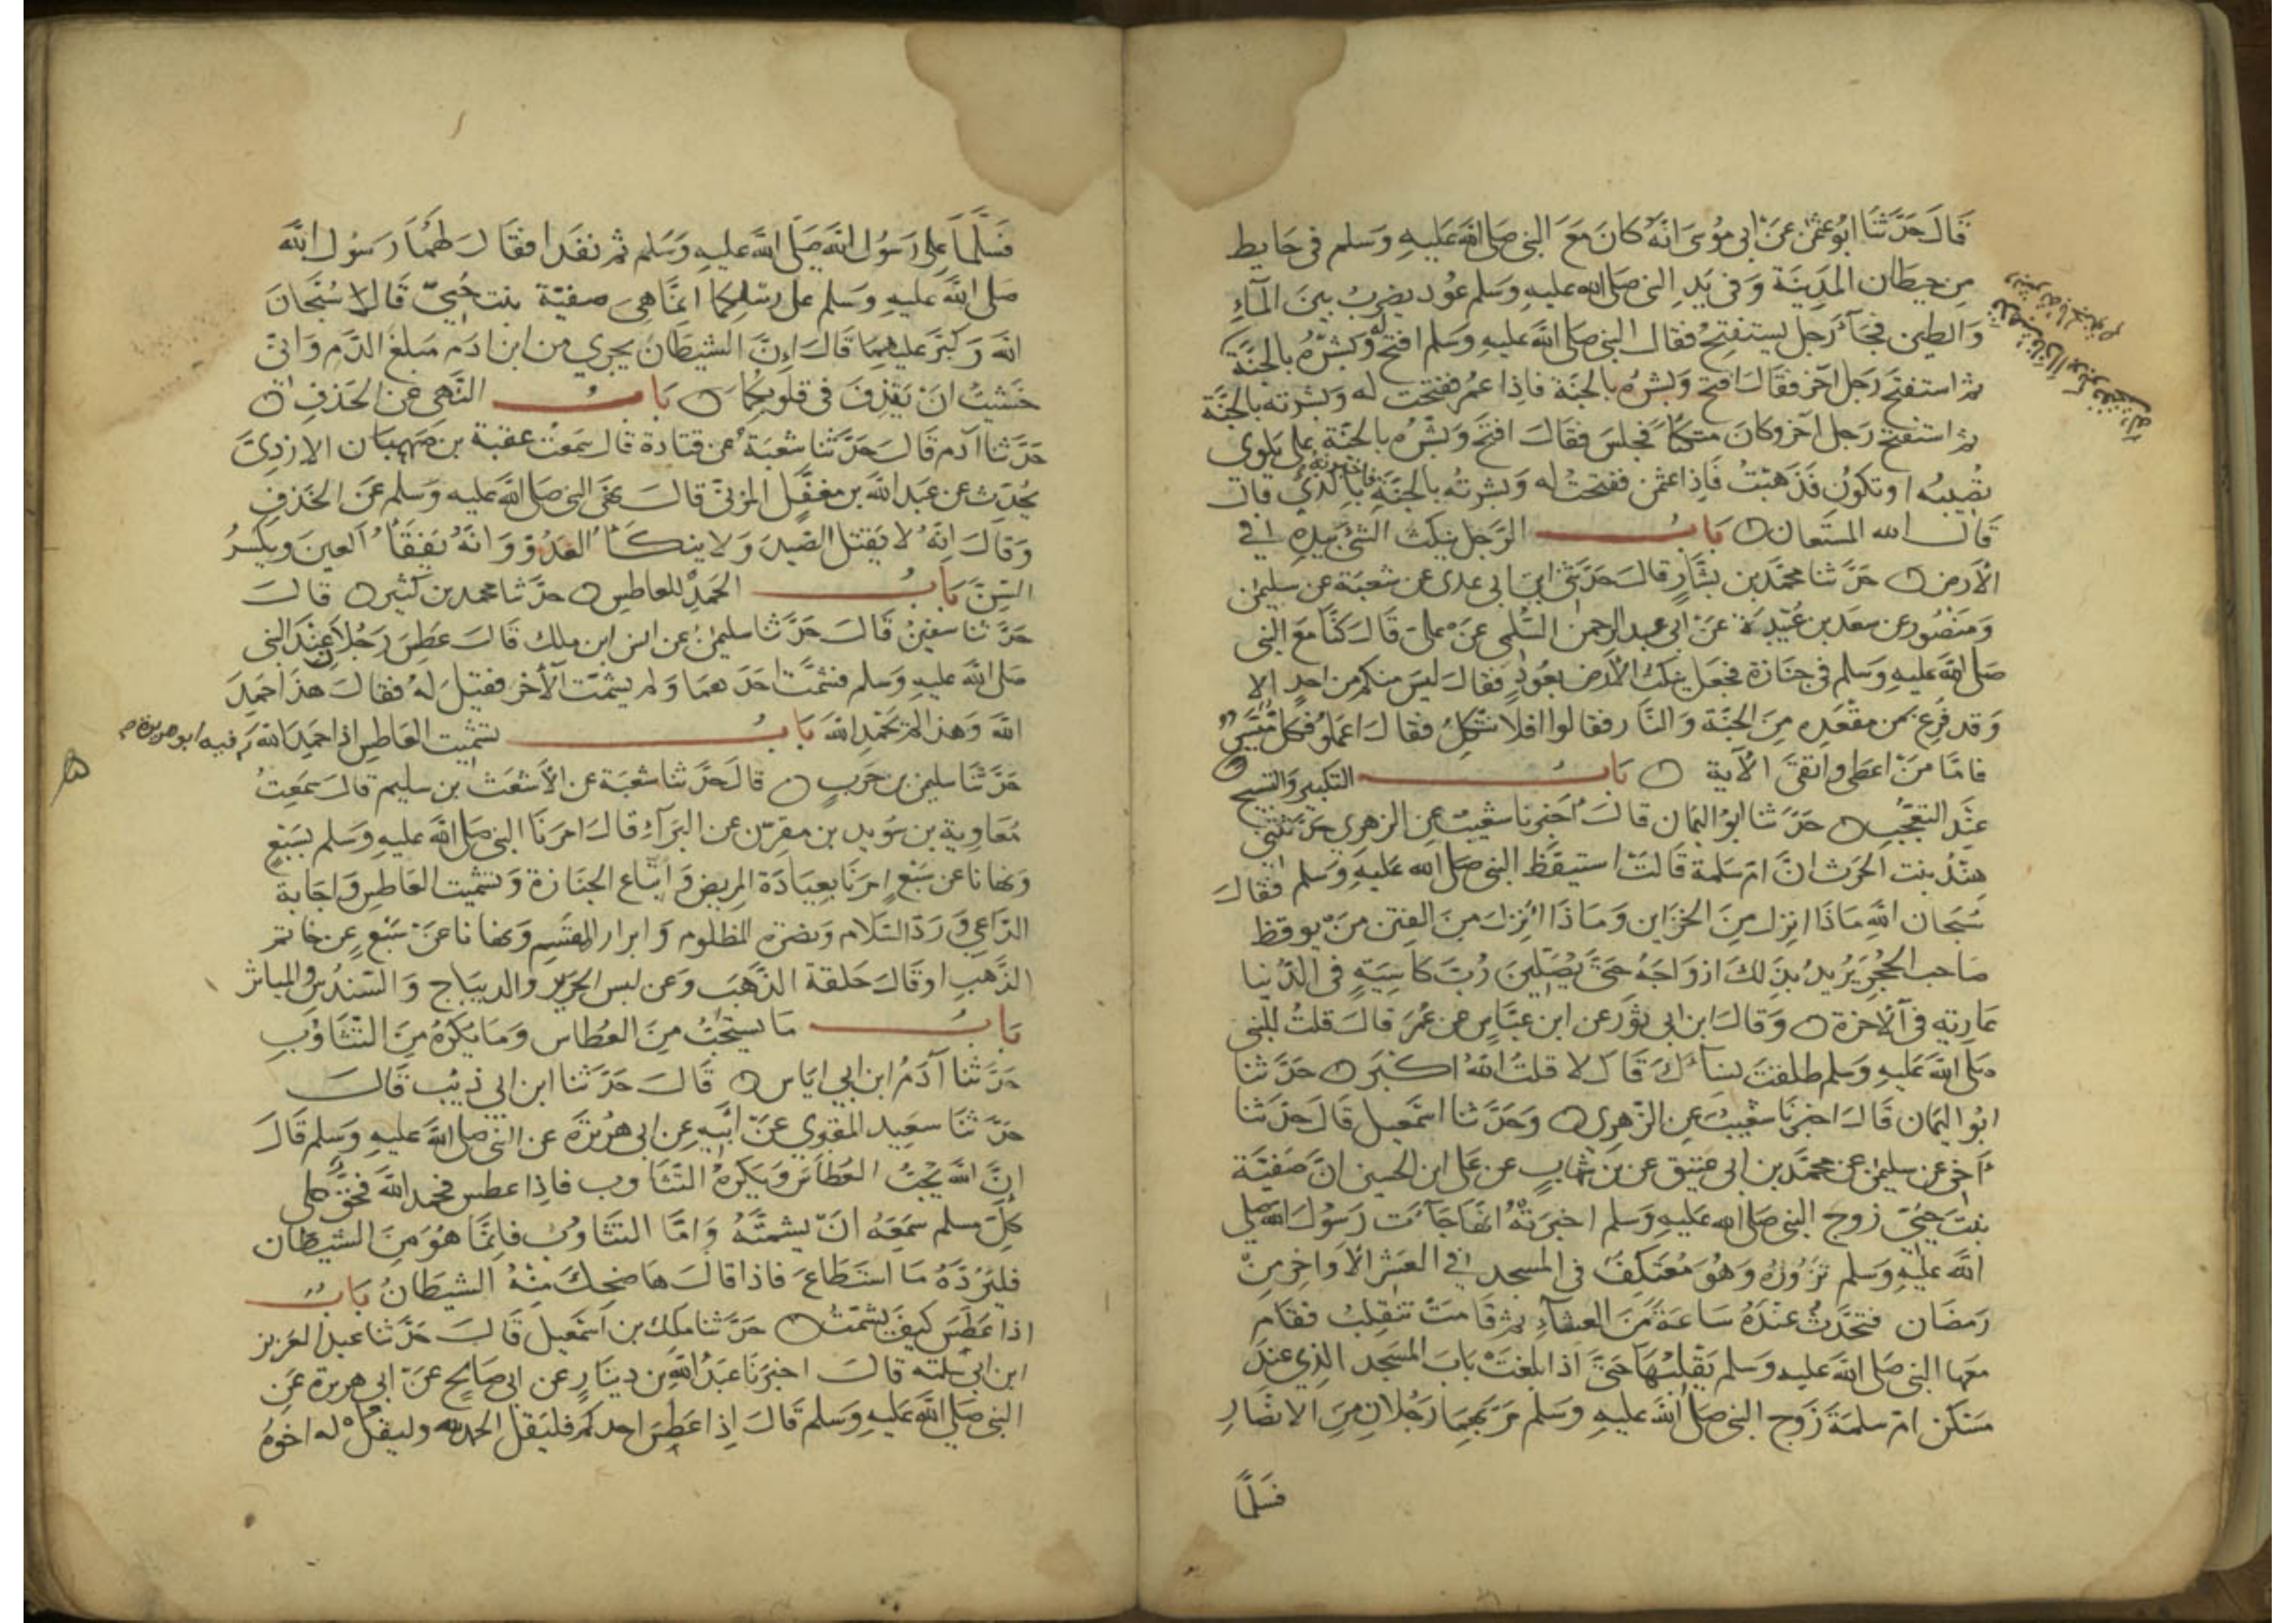 قَالَ حَدَّثَنَا ابُو عثمٰن عَنْ ابى مُوسَى انهُ كانَ مَعَ النبى صَلى الله عَليهِ وَسَلم فى حَايط
مِن حيطان المَدِينَة وَفى يَدِ النبى صَلى الله عليهِ وسلم عُود يضرِبُ بينَ المآءِ
وَالطين فَجآءَ رَجل يستفتِحُ فقال النبى صَلى الله عليهِ وَسَلم افتح لهُ وَبَشِّرهُ بالجنَّة
ثم استفتحَ رَجل آخر فقالَ افتح وَبشرهُ بالجنَّة فاذا عمُر ففتحت له وَبشرته بالجنَّة
ثم استفتحَ رَجل آخر وكانَ متكئاً فجلسَ فقالَ افتح وَبَشّرهُ بالجنَّة على بلوى
تُصِيبُه او تكونُ فَذَهَبْتُ فَاذا عثمٰن ففتحتُ له وَبشرتهُ بالجنَّةِ فاخبرته بالذى قال
قَالَ الله المستَعان بَابُ الرَّجل ينكت الشئ بيَدِهِ فى
الارض حَدَّثنا محمَّد بن بشَّارٍ قالَ حَدَّثنى ابن ابى عدى عن شعبَة عن سليمٰن
وَمنصُور عن سعد بن عُبَيدَة عَنْ ابى عبد الرحمن السُّلمى عَنْ على قَالَ كنَّا مَعَ النبى
صَلى الله عَليهِ وَسَلم فى جنازة فجعل ينكت الارض بعُودٍ فقالَ ليسَ منكم من احدٍ الا
وَقد فُرِغ من مقعَدِهِ مِنَ الجنَّة وَالنَّار فقالوا افلا نتَّكِلُ فقالَ اعمَلوا فكل مُيَسَّر
فامَّا مَنْ اعطى واتقىَ الآية بَابُ التكبير وَالتسبيح
عِنْدَ التعَجُّبِ حَدَّثنا ابوُ اليمَان قالَ أخبَرَنا شعَيبٌ عِن الزهرى حَدَّثتنى
هِنْدُ بنت الحَرث انَّ امّ سَلمة قَالت استيقظ النبى صَلى الله عَليهِ وَسَلم فقالَ
سُبحان اللهِ مَاذَا انزِلَ مِنَ الخزاين وَمَاذَا انْزِلَ مِنَ الفِتن مَنْ يوقظ
صَاحب الحُجَرِ يُرِيدُ بذلكَ ازوَاجَهُ حَتىّ يُصَلّينَ رُبَّ كاسِيَةٍ فى الدّنيا
عَارِيةٍ فى الآخرة وَقالَ ابن ابى ثوْر عن ابن عبَّاسٍ عن عمَرَ قالَ قلتُ للنبى
صَلى الله عَليهِ وَسَلم طلقتَ نسآءَكَ قَالَ لا قلتُ اللهُ اكبَر حَدَّثنا
ابوُ اليمَان قَالَ اخبرنَا شعَيبٌ عِن الزّهرى وَحَدَّثنا اسمعيل قَالَ حدّثنا
أخى عن سليمٰن عن محمَّد بن ابى عتيق عن بن شهابٍ عن على ابن الحسين انَّ صَفيَّة
بنتَ حيىّ زوج النبى صَلى الله عَليهِ وَسَلم اخبرَتهُ انهَا جَآءت رَسُول الله صلى
الله عَليهِ وَسَلم تزورُهُ وَهوَ مُعتكِفٌ فى المسجد فى العَشر الاَواخِر مِنْ
رَمضَان فتحدَّثتْ عندَهُ سَاعَةً مِنَ العِشآءِ ثم قامَتْ تنقلِبُ فقام
معَها النبى صَلى الله عليهِ وَسَلم يَقلِبُهَا حَتىَّ اذا بلغَتْ بابَ المسجد الذِى عندَ
مَسْكن امّ سَلمَة زَوج النبى صَلى الله عليهِ وسَلم مَرَّ بهِمَا رَجُلانِ مِنَ الانصَارِ
فسَلَّمَا
فسَلَّمَا على رَسُول الله صَلَى الله عليهِ وَسَلم ثم نفَذا فقَالَ لهُمَا رَسُول الله
صَلى الله عليهِ وَسَلم على رسْلِكما انمَّا هِىَ صفيّة بنت حُيىّ قَالاَ سُبحَانَ
الله وَكبُرَ عليهِمَا قَالَ إنَّ الشيطَان يجرِى من ابن ادَم مَبلغَ الدَّم وَانىّ
خشيتُ انْ يَقذِفَ فى قلوبِكمَا بَابُ النَّهى عن الخذف
حَدَّثنا آدم قَالَ حَدَّثنا شعْبَة عن قتادة قال سَمعتُ عقبة بن صَهبَان الازدِىَّ
يُحدّث عن عَبد الله بن مغفَّل المزنىّ قالَ نهَى النبى صَلى الله عليه وَسَلم عَن الخذفِ
وَقالَ انهُ لا يَقتل الصّيدَ وَلا ينكَأ العَدُوَّ وَانهُ يَفقَأ العينَ ويكسرُ
السِّنَّ بَابُ الحَمدِ للعاطِس حَدَّثنا محمد بن كثير قالَ
حَدَّثنا سفينُ قَالَ حَدَّثنا سليمٰن عن انس ابن ملك قَالَ عَطسَ رَجُلانِ عِندَ النبى
صَلى الله عليهِ وسَلم فشمَّتَ احَدَهمَا وَلم يشمّت الآخر فقيلَ لهُ فقالَ هذا حَمِدَ
الله وَهذا لم يَحْمدِ الله بَابُ تشميت العَاطِسِ اذا حَمِدَ الله فيه ابو هريرة
حَدَّثنا سليمٰن بن حَربٍ قالَ حَدَّثنا شعْبَة عن الاَشعَث ابن سليم قالَ سَمعِتُ
مُعَاوية بن سُويد بن مقرّن عن البَرآءِ قالَ امَرنَا النبى صَلى الله عليهِ وَسَلم بسَبْعٍ
وَنهانا عن سَبْعٍ امَرنَا بعيَادَة المريض وَاتّباع الجنَازة وَتشميت العَاطِسِ وَاجَابة
الدَّاعِى وَرَدّ السَّلام وَنصْرة المظلوم وَابرار المقسِم وَنهانا عَنْ سَبْعٍ عن خاتم
الذَّهبِ او قَالَ حَلقة الذَّهبَ وَعن لبس الحَرير والديبَاج وَالسّندُس والمياثر
بَابُ مَا يستحَبُّ مِنَ العُطاس وَمَا يكرَهُ مِنَ التّثاؤُبِ
حَدَّثنا آدَمُ ابن ابى ايَاس قَالَ حَدَّثنا ابن ابى ذئب قَالَ
حَدَّثنا سَعِيد المقبرى عَنْ ابيهِ عن ابى هرَيرَة عن النبى صَلى الله عليهِ وَسَلم قالَ
إنَّ الله يحُبُّ العُطاسَ وَيَكرَهُ التَّثاوب فاذِا عطس فحمد الله فحَقٌّ على
كلِّ مسلم سَمعَهُ انْ يشمتَّهُ وَامَّا التثاوبُ فانمَّا هُوَ مِنَ الشيطان
فليَرُدَّهُ مَا استَطاعَ فاذا قالَ هَا ضحِكَ مِنهُ الشيطَانُ بَابُ
اذا عَطَسَ كيفَ يشمّتُ حَدَّثنا ملك بن اسمعيل قَالَ حَدَّثنا عبد العَزيز
ابن ابى سَلمَة قَالَ اخبَرَنا عَبدُ الله بن دينارٍ عن ابى صَالحٍ عَنْ ابى هريرة عَن
النبى صَلى الله عَليهِ وَسَلم قَالَ إِذا عَطسَ احدكم فليَقل الحمد لله وليقلْ له اخوُهُ